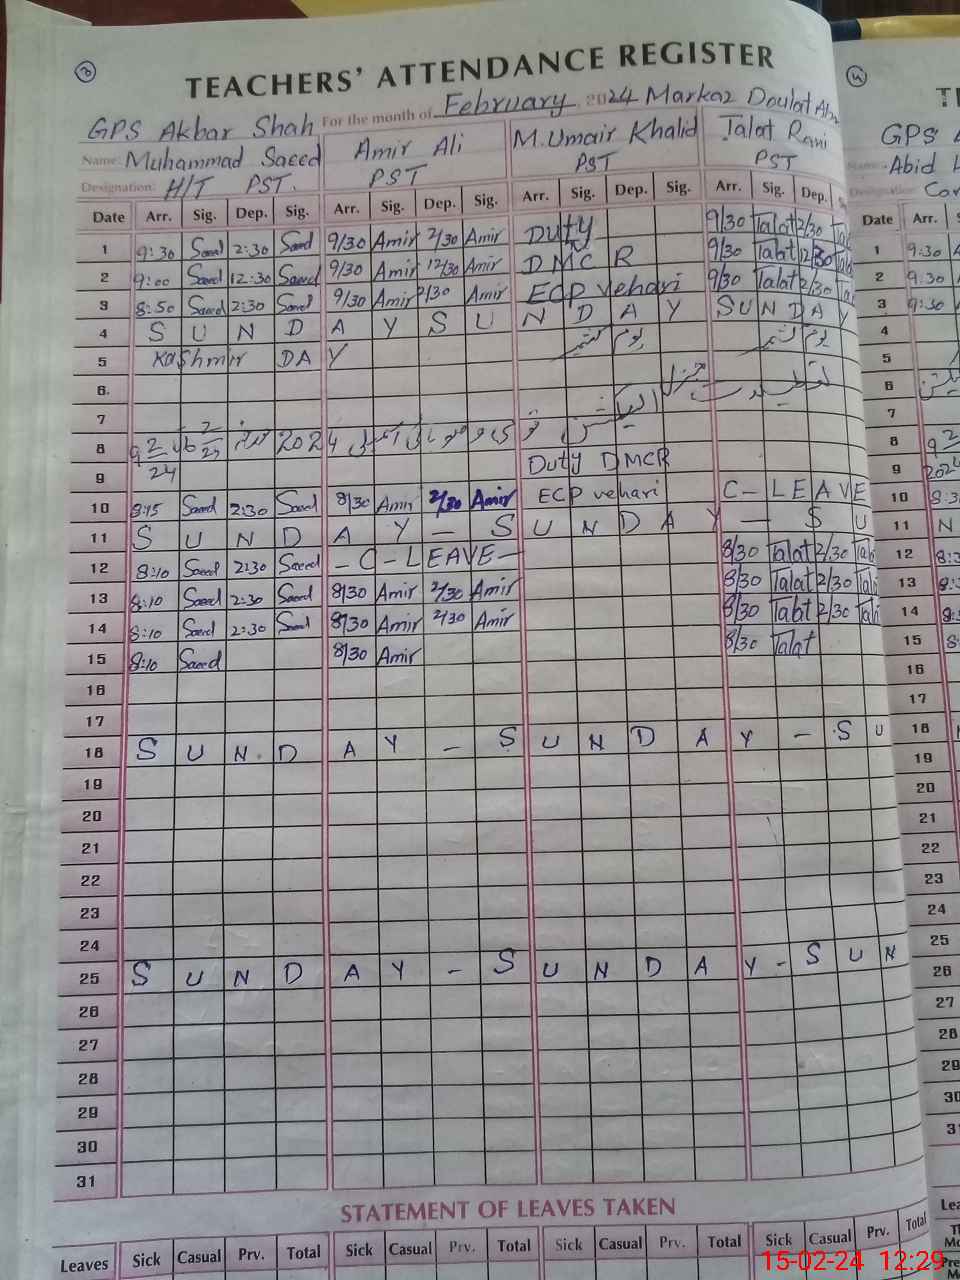 3
4
TEACHERS' ATTENDANCE REGISTER
GPS Akbar Shah For the month of February 2024 Markaz Doulat
GPS
Name: Muhammad Saeed Amir Ali M. Umair Khalid Talat Rani
Abid
Designation: H/T PST. PST PST PST
Designation:
Date Arr. Sig. Dep. Sig. Arr. Sig. Dep. Sig. Arr. Sig. Dep. Arr. Sig. Dep. Date Arr.
1 9:30 Saeed 2:30 Saeed 9/30 Amir 2/30 Amir Duty 9/30 Talat 2/30 Tal 1 9:30
2 9:00 Saeed 12:30 Saeed 9/30 Amir 12/30 Amir DMC R 9/30 Talat 12/30 Tala 2 9:30
3 8:50 Saeed 2:30 Saeed 9/30 Amir 2/30 Amir ECP vehari 9/30 Talat 2/30 Ta 3 9:30
4 S U N D A Y S U N D A Y S U N D A Y 4
5 Kashmir DAY یوم کشمیر یوم کشمیر 5
6. 6
7 7
8 2024 8
9 Duty DMCR 9 2024
10 8:15 Saeed 2:30 Saeed 8/30 Amir 2/30 Amir ECP vehari C-LEAVE 10
11 S U N D A Y - S U N D A Y - S U 11 N
12 8:10 Saeed 2:30 Saeed - C-LEAVE - 8/30 Talat 2/30 Tal 12
13 8:10 Saeed 2:30 Saeed 8/30 Amir 2/30 Amir 8/30 Talat 2/30 Tal 13
14 8:10 Saeed 2:30 Saeed 8/30 Amir 2/30 Amir 8/30 Talat 2/30 Tal 14
15 8:10 Saeed 8/30 Amir 8/30 Talat 15
16 16
17 17
18 S U N D A Y - S U N D A Y - S U 18
19 19
20 20
21 21
22 22
23 23
24 24
25 S U N D A Y - S U N D A Y - S U N 25
26 26
27 27
28 28
29 29
30 30
31 31
STATEMENT OF LEAVES TAKEN
Leaves Sick Casual Prv. Total Sick Casual Prv. Total Sick Casual Prv. Total Sick Casual Prv. Total
15-02-24 12:29